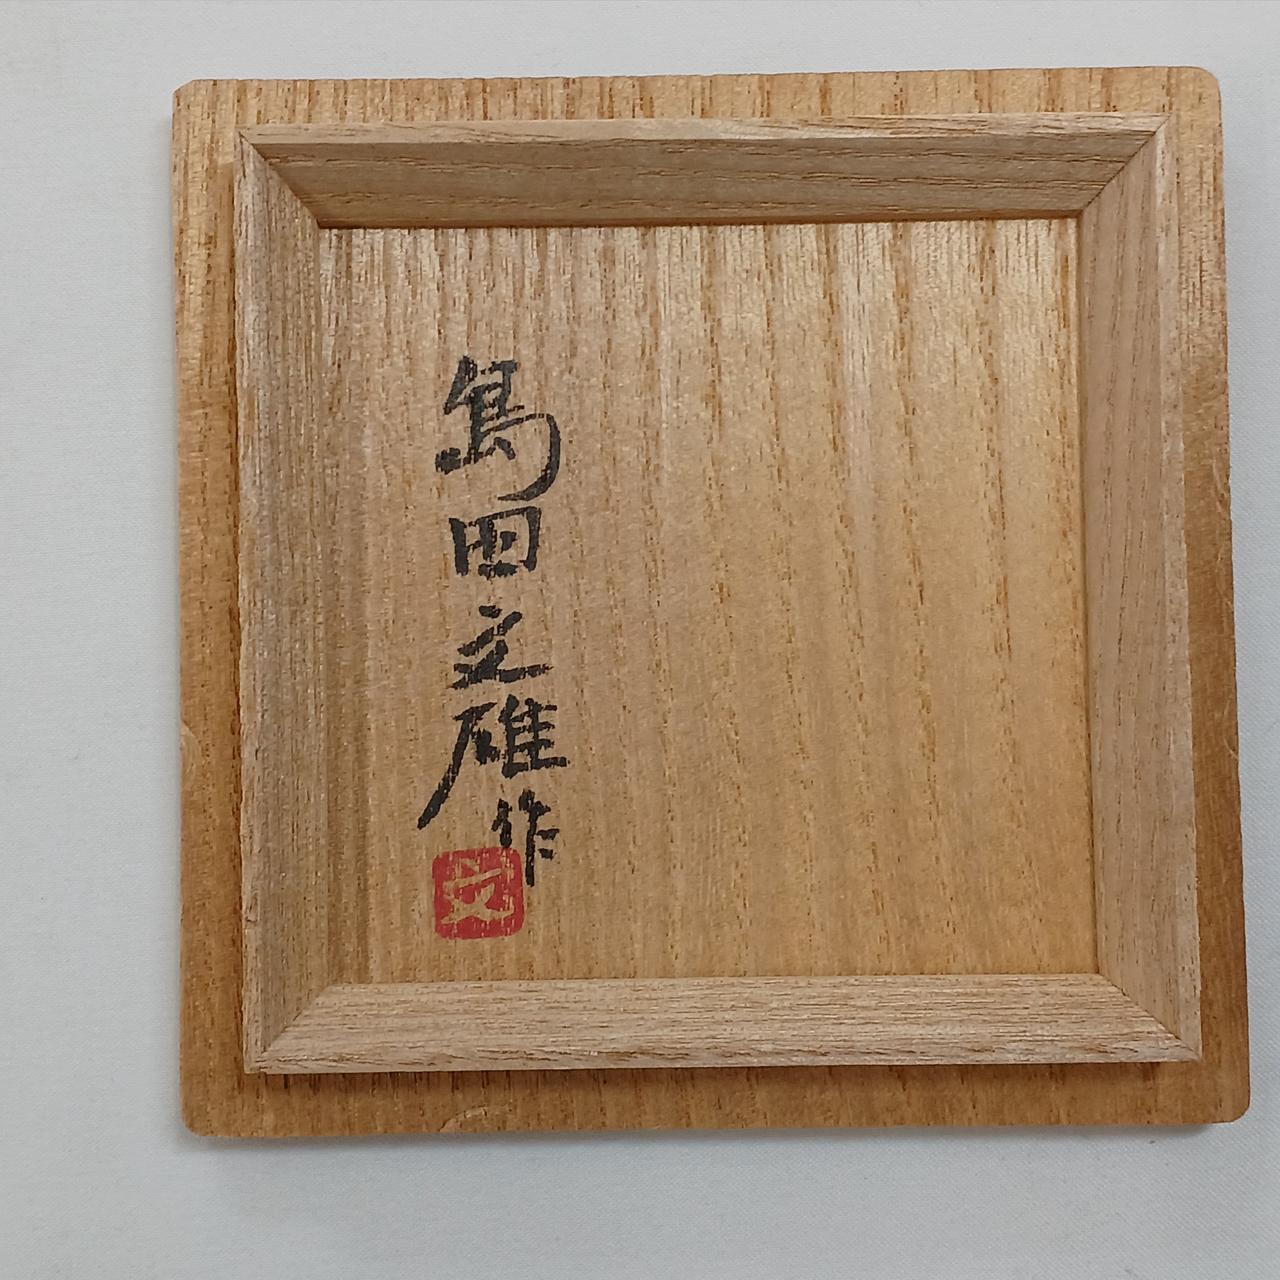 島田文雄作
文